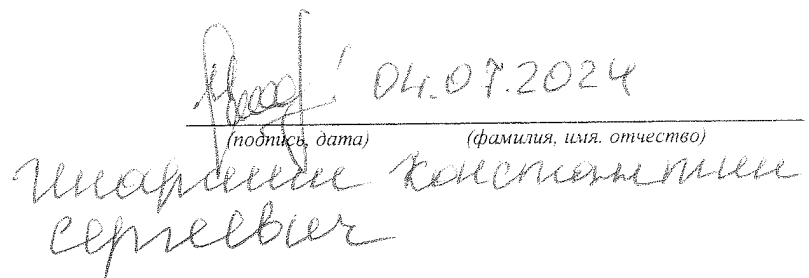 04.07.2024
(подпись, дата) (фамилия, имя. отчество)
Константин
Сергеевич